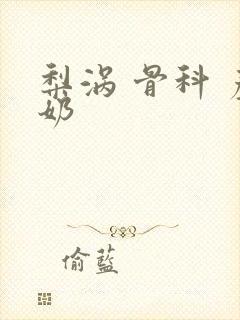 梨涡 骨科
奶
偷蓝